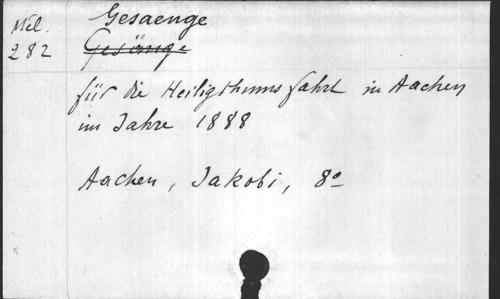 Mel.
282
Gesaenge
Gesänge
für die Heiligthumsfahrt in Aachen
im Jahre 1888
Aachen, Jakobi, 8º